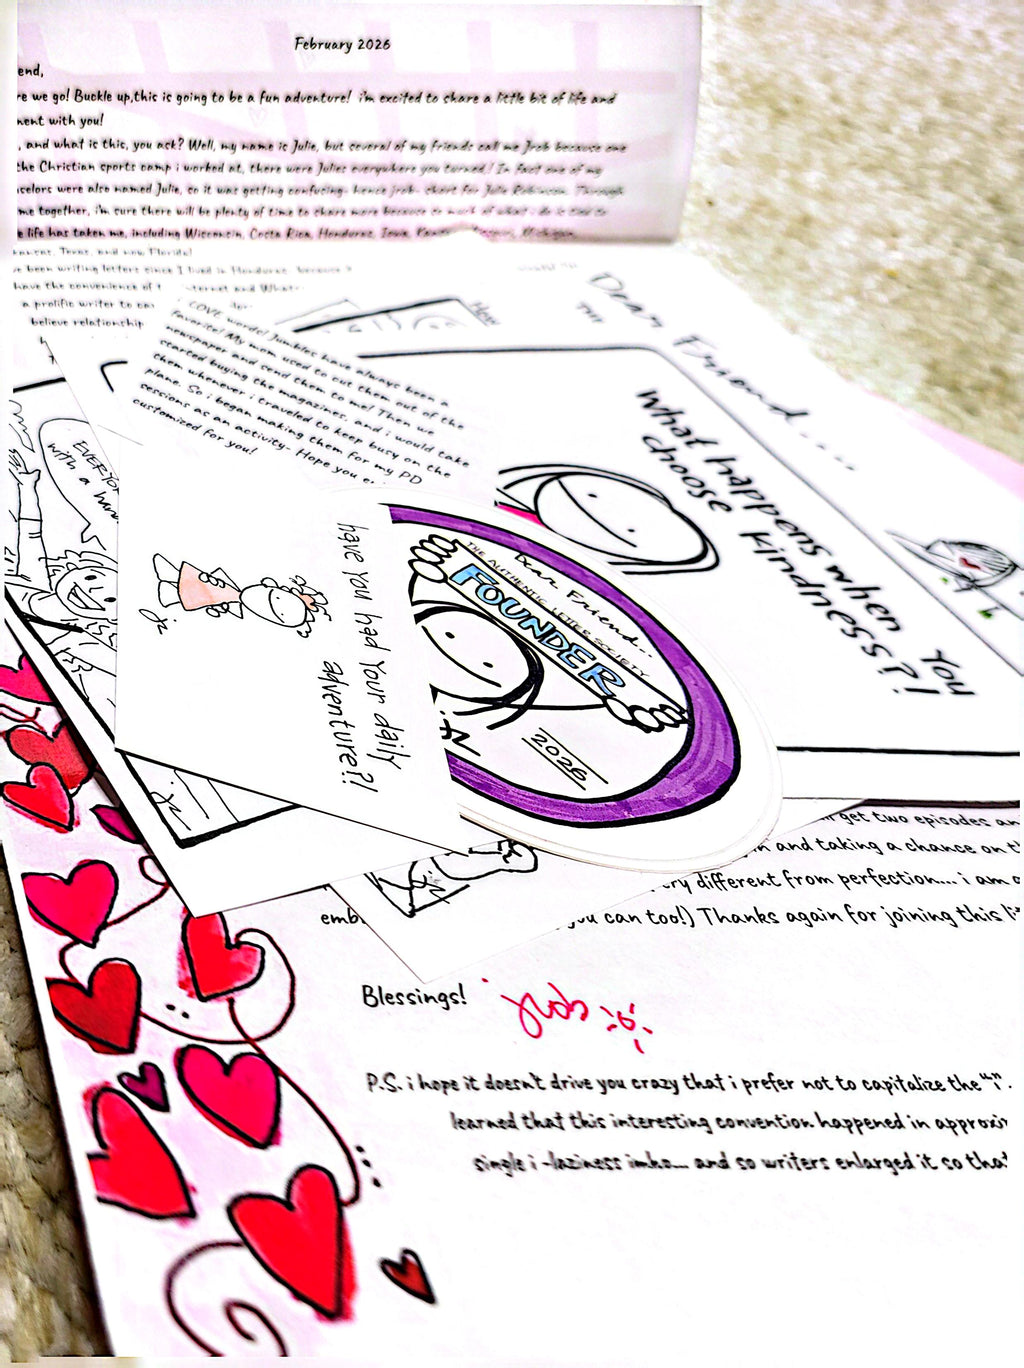 February 2026
end,
re we go! Buckle up,this is going to be a fun adventure! i'm excited to share a little bit of life and
ment with you!
, and what is this, you ask? Well, my name is Julie, but several of my friends call me Jrob because one
the Christian sports camp i worked at, there were Julies everywhere you turned! In fact one of my
selors were also named Julie, so it was getting confusing- hence jrob- short for Julie Robinson. Through
me together, i'm sure there will be plenty of time to share more because so much of what i do is tied to
e life has taken me, including Wisconsin, Costa Rica, Honduras, Iowa, Missouri, Michigan,
Texas, and now Florida!
e been writing letters since I lived in Honduras, because
have the convenience of
a prolific writer to
believe relationship
LOVE words! Jumbles have always been a
favorite! My mom used to cut them out of the
newspaper and send them to me! Then we
started buying the magazines, and i would take
them whenever i traveled to keep busy on the
plane. So i began making them for my PD
sessions as an activity- Hope you
customized for you!
Dear Friend....
What happens when you
choose kindness?!
EVERYO
with a
have you had your daily
adventure?!
jr
Dear Friend...
THE AUTHENTIC LETTER SOCIETY
FOUNDER
2026
jr
get two episodes an
and taking a chance on t
ery different from perfection... i am
emb
you can too!) Thanks again for joining this li
Blessings!
jrob
P.S. i hope it doesn't drive you crazy that i prefer not to capitalize the "i".
learned that this interesting convention happened in approxi
single i -laziness imho... and so writers enlarged it so that